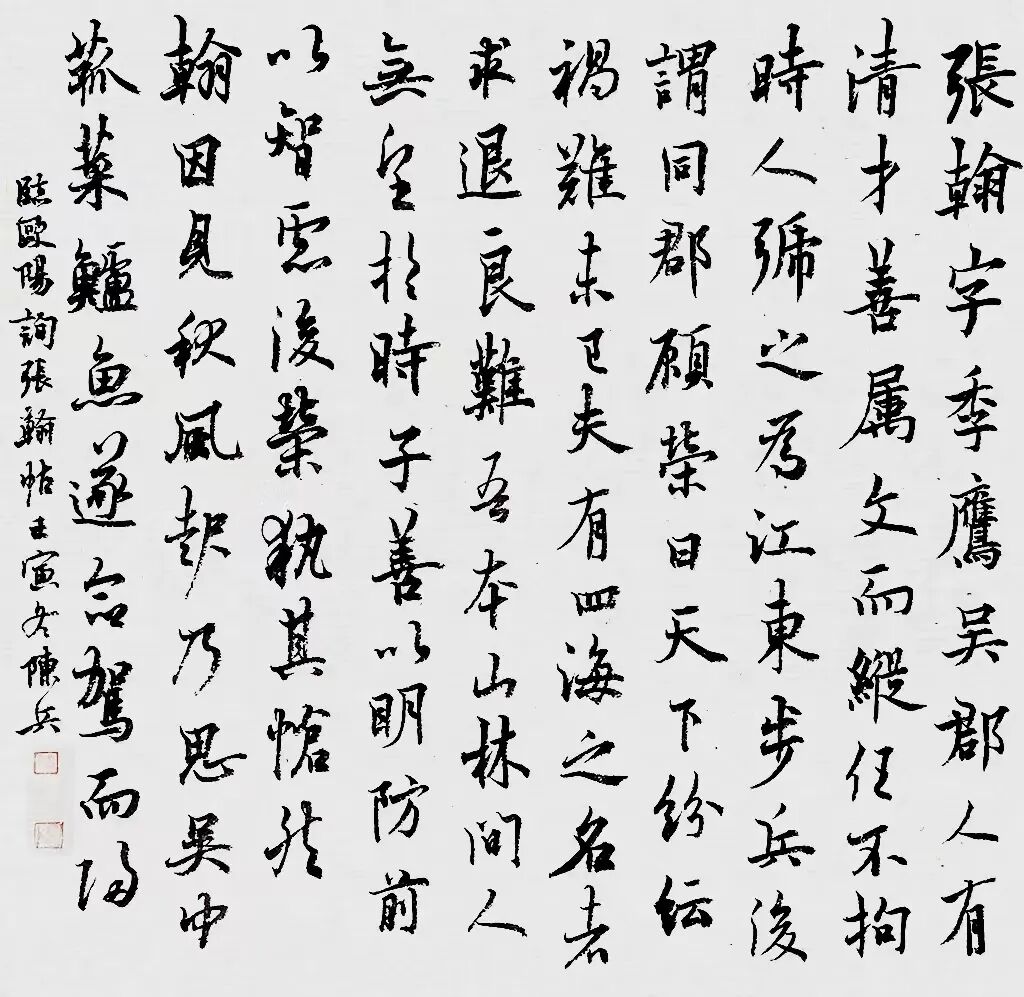 張翰字季鷹吳郡人有
清才善属文而縱任不拘
時人號之為江東步兵後
謂同郡顧榮曰天下紛紜
禍難未已夫有四海之名者
求退良難吾本山林間人
無望於時子善以明防前
以智慮後榮執其愴然
翰因見秋風起乃思吳中
菰菜鱸魚遂命駕而歸
臨歐陽詢張翰帖壬寅冬陳兵